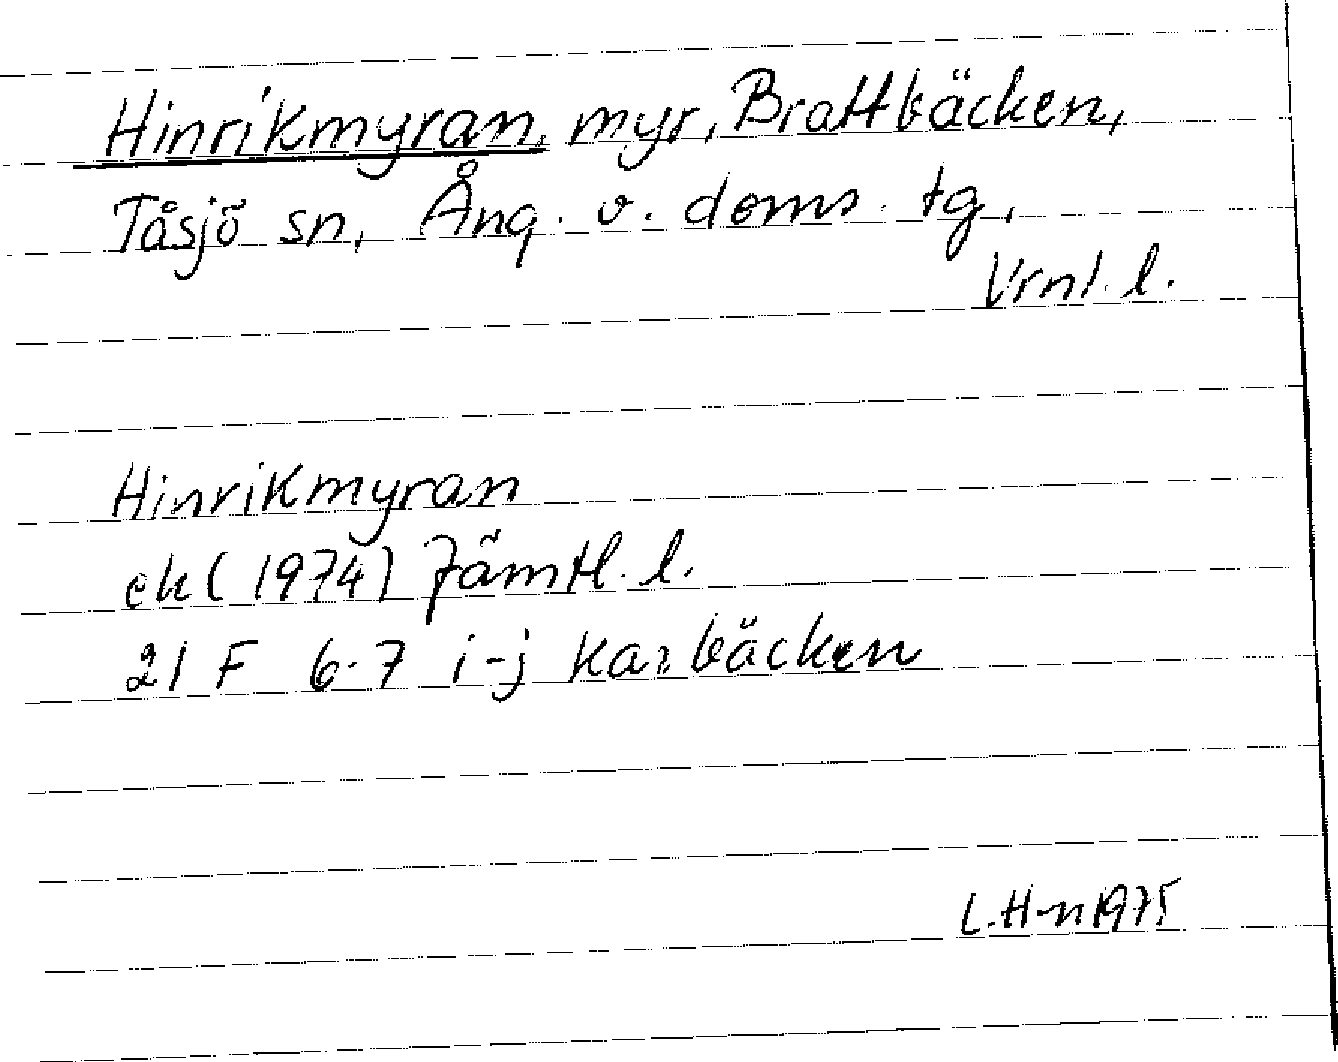 Hinrikmyran, myr, Brattbäcken,
Tåsjö sn, Ång. v. doms. tg,
Vrnl. l.
Hinrikmyran
ek (1974) Jämtl. l.
21 F 6-7 i-j Karbäcken
L. H-n 1975